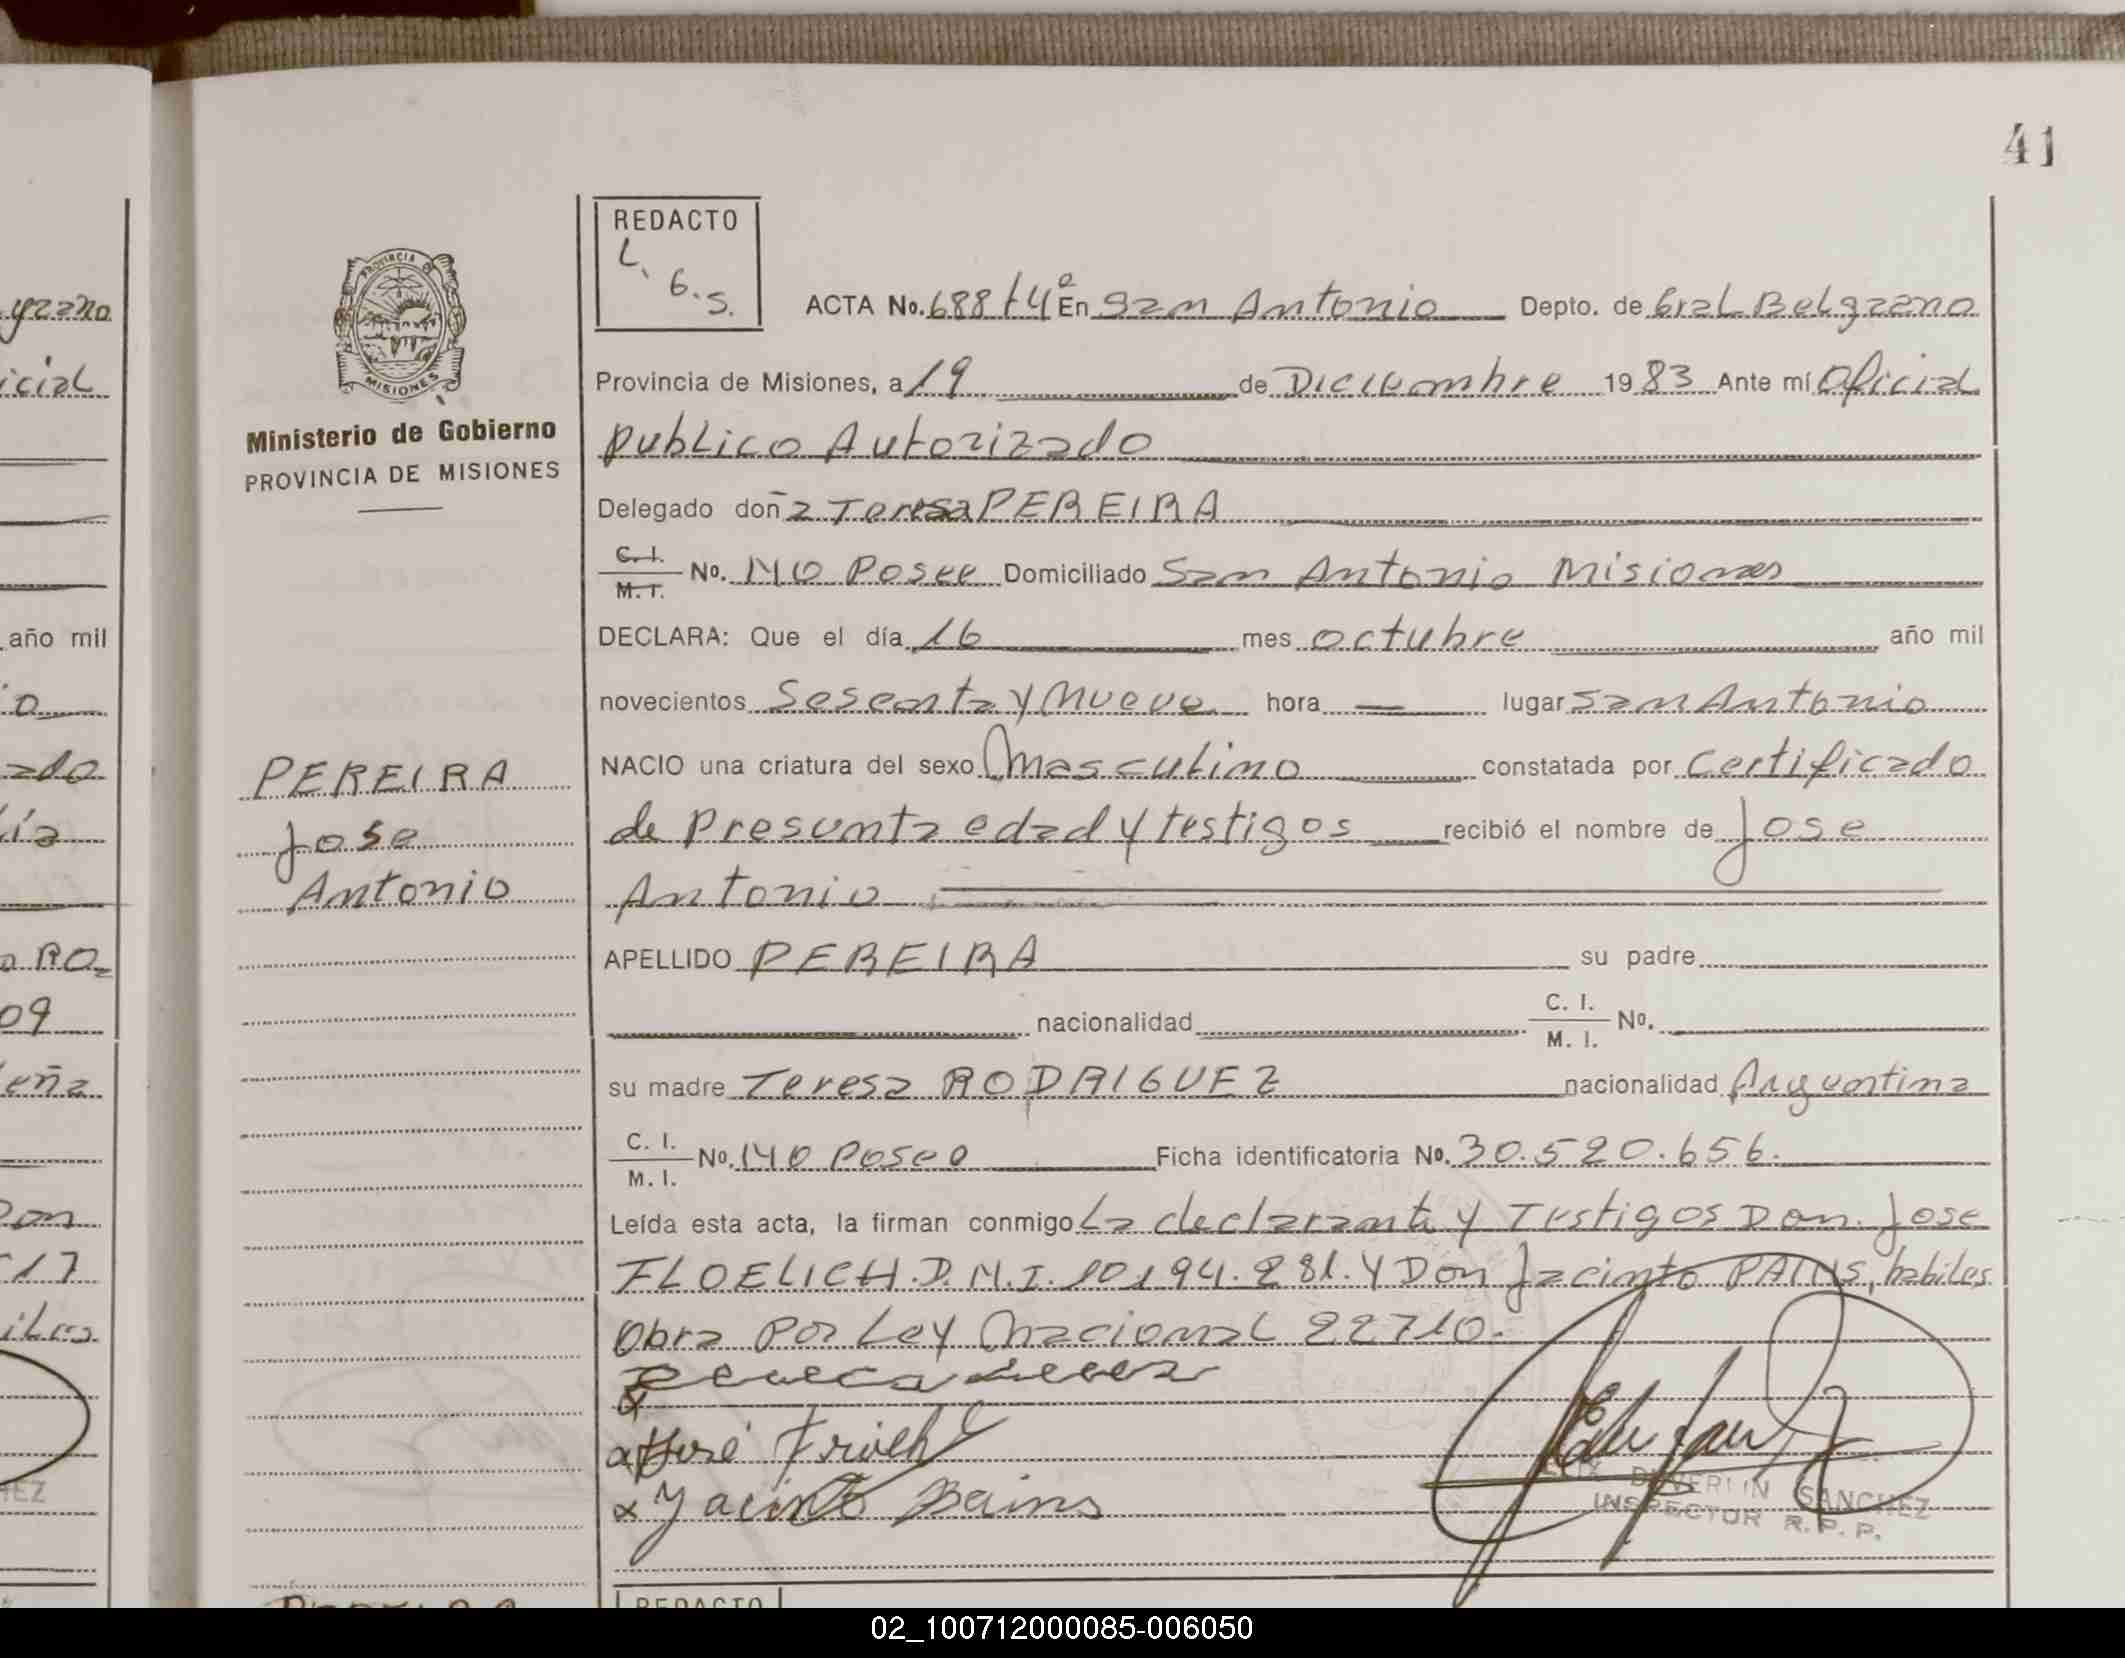 41
REDACTO
L.
G.S.
PROVINCIA DE
MISIONES
Ministerio de Gobierno
PROVINCIA DE MISIONES
ACTA No. 688 t 4º En San Antonio Depto. de Gral Belgrano
Provincia de Misiones, a 19 de Diciembre 1983 Ante mí Oficial
publico Autorizado
Delegado doña Teresa PEREIRA
C. I. / M. I. No. NO Posee Domiciliado San Antonio Misiones
DECLARA: Que el día 16 mes octubre año mil
novecientos Sesenta y Nueve hora — lugar San Antonio
NACIO una criatura del sexo Masculino constatada por Certificado
de Presunta edad y testigos recibió el nombre de Jose
Antonio
APELLIDO PEREIRA su padre
nacionalidad C. I. / M. I. No.
su madre Teresa RODRIGUEZ nacionalidad Argentina
C. I. / M. I. No. NO Poseo Ficha identificatoria No. 30.520.656.
Leída esta acta, la firman conmigo La declarante y Testigos Don. Jose
FLOELICH. D.N.I. 10194.281. Y Don Jacinto habiles
Obra por Ley Nacional 22710.
José
Jacinto
SANCHEZ
INSPECTOR R. P. P.
PEREIRA
Jose
Antonio
yrano
icial
año mil
o
ado
ía
o RO
09
eña
Don
17
iles
HEZ
REDACTO
02_100712000085-006050